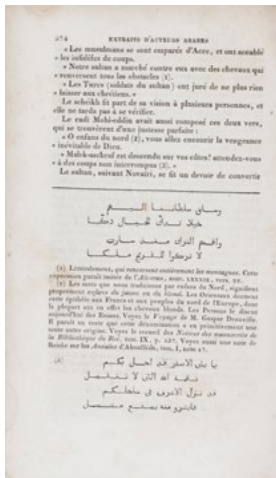 574 EXTRAITS D'AUTEURS ARABES
« Les musulmans se sont emparés d'Acre, et ont accablé
« les infidèles de coups.
« Notre sultan a marché contre eux avec des chevaux qui
« renversent tous les obstacles (1).
« Les Turcs (soldats du sultan) ont juré de ne plus rien
« laisser aux chrétiens. »
Le scheikh fit part de sa vision à plusieurs personnes, et
elle ne tarda pas à se vérifier.
Le cadi Mohi-eddin avait aussi composé ces deux vers,
qui se trouvèrent d'une justesse parfaite :
« O enfans du nord (2), vous allez encourir la vengeance
« inévitable de Dieu.
« Malek-aschraf est descendu sur vos côtes! attendez-vous
« à des coups non interrompus (3). »
Le sultan, suivant Novaïri, se fit un devoir de convertir
وساق سلطاننا اليهم
خيلا تدك الجبال دكا
واقسم الترك منذ سارت
لا تركوا للفرنج ملكا
(1) Littéralement, qui renverseront entièrement les montagnes. Cette
expression paraît imitée de l'Alcoran, sour. LXXXIX, vers. 22.
(2) Les mots que nous traduisons par enfans du Nord, signifient
proprement enfans du jaune ou du blond. Les Orientaux donnent
cette épithète aux Francs et aux peuples du nord de l'Europe, dont
la plupart ont en effet les cheveux blonds. Les Persans le disent
aujourd'hui des Russes. Voyez le Voyage de M. Gaspar Drouville.
Il paraît au reste que cette dénomination a eu primitivement une
toute autre origine. Voyez le recueil des Notices des manuscrits de
la Bibliothèque du Roi, tom. IX, p. 437. Voyez aussi une note de
Reiske sur les Annales d'Aboulféda, tom. I, note 47.
(3) يا بني الاصفر قد احل بكم
نقمة الله التي لا تنفصل
قد نزل الاشرف في ساحلكم
فابشروا منه بصفع متصل